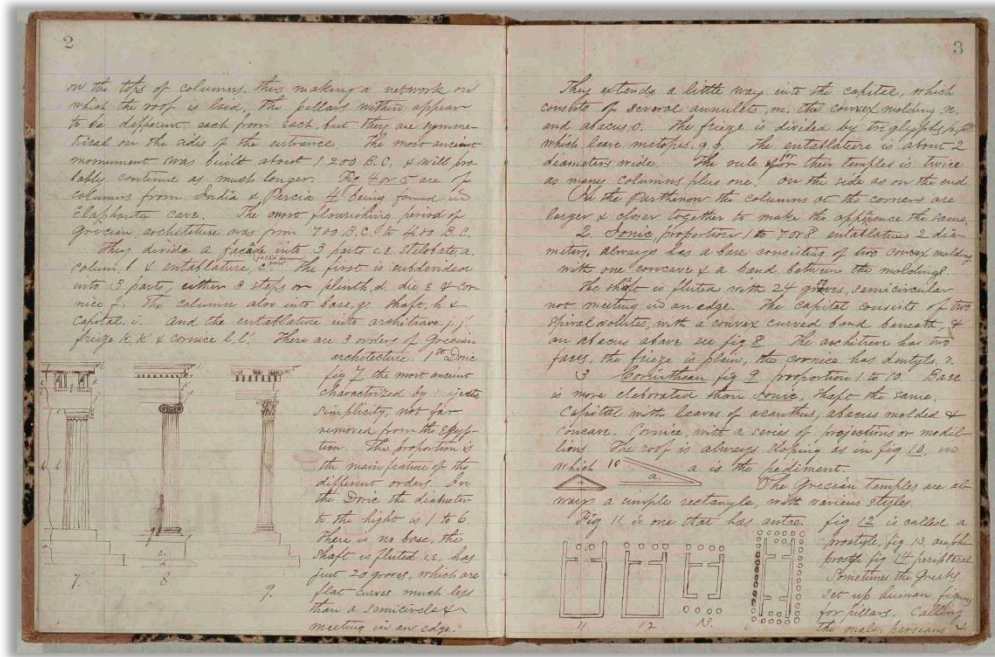 2
on the tops of columns, thus making a network on
which the roof is laid, the pillars within appear
to be different each from each, but they are symme-
trical on the sides of the entrance. The most ancient
monument was built about 1200 B.C. & will pro-
bably continue as much longer. Fig 4 or 5 are of
columns from India & Percia 4 being found in
Elaphanta cave. The most flourishing period of
Grecian architeture was from 700 B.C. to 400 B.C.
They divide a facade into 3 parts i.e. Stelobate, a.
colum, b & entablature, c. The first is subdivided
into 3 parts, either 3 steps or plinth, d. die, e & cor-
nice f. The column also into base, g. shaft, h &
capital, i. And the entablature into architrave, j. j.
frieze k. k. & cornice l. l. There are 3 orders of Grecian
architecture 1st Doric
fig 7 the most ancient
charactorized by majestic
simplicity, not far
removed from the Egyp-
tion. The proportion is
the main feature of the
different orders. In
the Doric the diameter
to the hight is 1 to 6
there is no base, the
shaft is fluted i.e. has
just 20 groves, which are
flat curves much less
than a semicircle &
meeting in an edge.
7.
8
9.
3
They extends a little way into the capital, which
consists of several annulets, m, the convex molding n.
and abacus, o. The frieze is divided by triglyphs, p.p
which leave metopes. q. q. The entablature is about 2
diameters wide. The rule for their temples is twice
as many columns plus one. on the side as on the end.
On the Parthenon the columns at the corners are
larger & closer together to make the appearence the same.
2 Ionic, proportion 1 to 7 or 8 entablature 2 dia-
meters, always has a base consisting of two convex molding
with one concave & a band between the moldings.
The shaft is fluted with 24 groves, semicircular
not meeting in an edge. The capital consists of two
spiral volutes, with a convex curved band beneath, &
an abacus above see fig 8 The architrave has two
faces, the frieze is plain, the cornice has dentyls,
3 Corinthean fig 9 proportion 1 to 10. Base
is more elaborated than Ionic, shaft the same.
Capital with leaves of acanthus, abacus molded &
concave. Cornice, with a series of projections or modil-
lions The roof is always sloping as in fig 10, in
which 10 a a is the pediment.
The Grecian temples are al-
ways a simple rectangle, with various styles.
Fig 11, is one that has antae. fig 12 is called a
prostyle, fig, 13, amphi-
prostyle fig 14 peripteral
Sometimes the Greeks
set up human figures
for pillars. Calling
the males persians &
11
12
13.